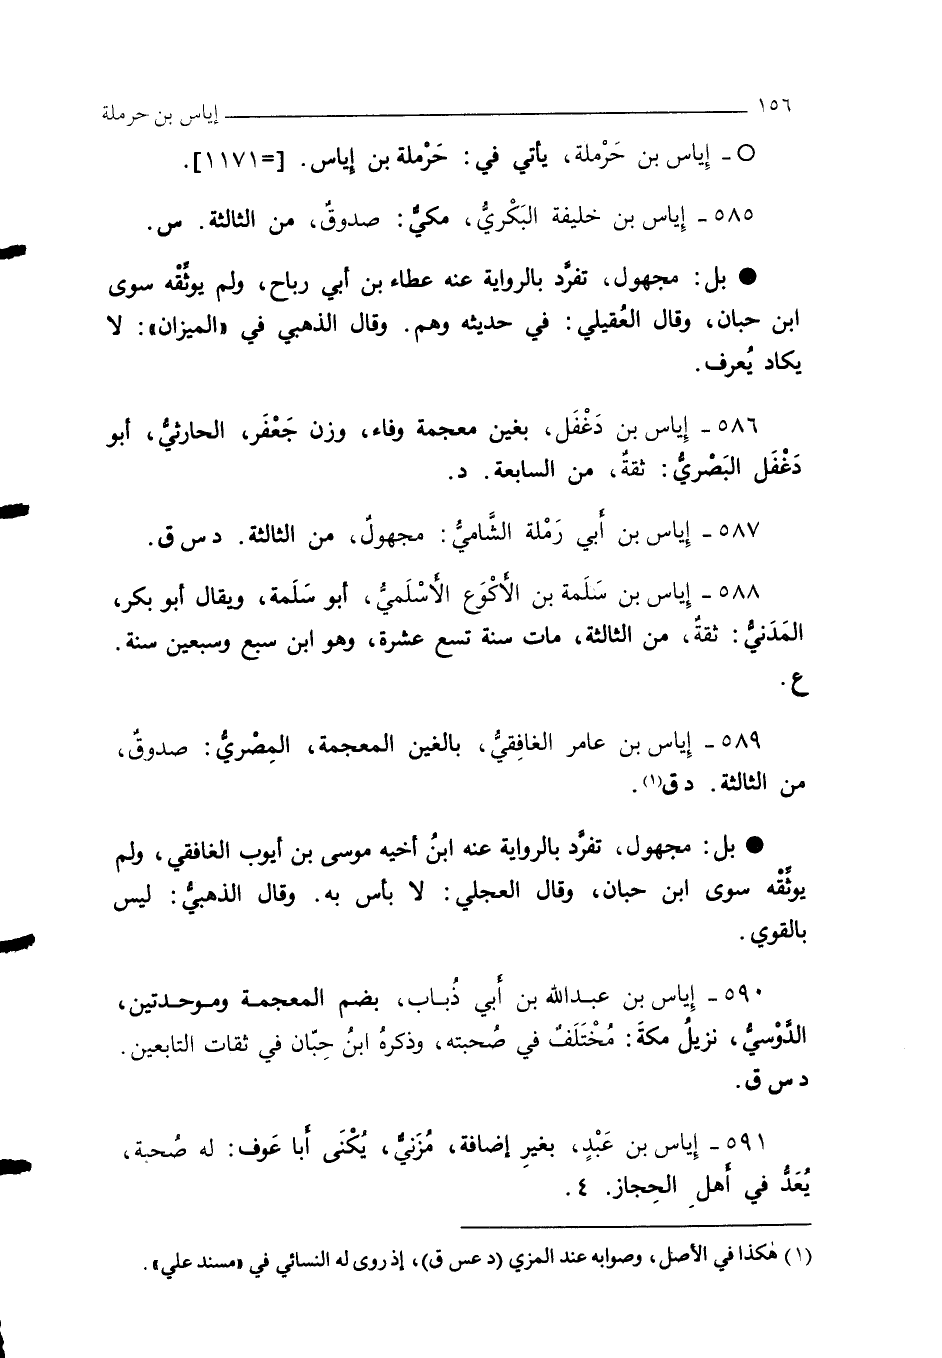 ١٥٦ إياس بن حرملة
○ ـ إياس بن حَرْملة، يأتي في: حَرْملة بن إياس. [=١١٧١].
٥٨٥ ـ إياس بن خليفة البَكْريُّ، مكيٌّ: صدوقٌ، من الثالثة. س.
● بل: مجهول، تفرَّد بالرواية عنه عطاء بن أبي رباح، ولم يوثِّقْه سوى
ابن حبان، وقال العُقيلي: في حديثه وهم. وقال الذهبي في «الميزان»: لا
يكاد يُعرف.
٥٨٦ ـ إياس بن دَغْفَل، بغين معجمة وفاء، وزن جَعْفَر، الحارثيُّ، أبو
دَغْفَل البَصْريُّ: ثقةٌ، من السابعة. د.
٥٨٧ ـ إياس بن أَبي رَمْلة الشَّاميُّ: مجهولٌ، من الثالثة. د س ق.
٥٨٨ ـ إياس بن سَلَمة بن الأَكْوَع الأَسْلَميُّ، أبو سَلَمة، ويقال أبو بكر،
المَدَنيُّ: ثقةٌ، من الثالثة، مات سنة تسع عشرة، وهو ابن سبع وسبعين سنة.
ع.
٥٨٩ ـ إياس بن عامر الغافِقيُّ، بالغين المعجمة، المِصْريُّ: صدوقٌ،
من الثالثة. د ق(١).
● بل: مجهول، تفرَّد بالرواية عنه ابنُ أخيه موسى بن أيوب الغافقي، ولم
يوثِّقْه سوى ابن حبان، وقال العجلي: لا بأس به. وقال الذهبيُّ: ليس
بالقوي.
٥٩٠ ـ إياس بن عبدالله بن أَبي ذُباب، بضم المعجمة وموحدتين،
الدَّوْسيُّ، نزيلُ مكةَ: مُخْتَلَفٌ في صُحبته، وذكرهُ ابنُ حِبّان في ثقات التابعين.
د س ق.
٥٩١ ـ إياس بن عَبْدٍ، بغيرِ إضافة، مُزَنيٌّ، يُكْنَى أَبا عَوف: له صُحبة،
يُعَدُّ في أَهلِ الحِجاز. ٤.
(١) هٰكذا في الأصل، وصوابه عند المزي (د عس ق)، إذ روى له النسائي في «مسند علي».